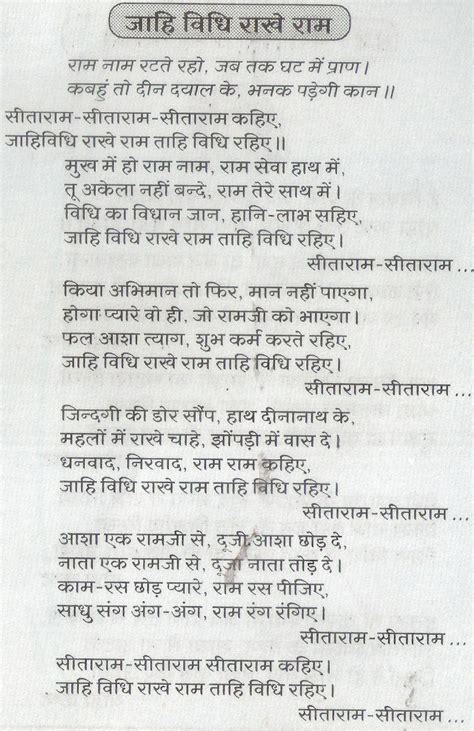 जाहि विधि राखे राम
राम नाम रटते रहो, जब तक घट में प्राण।
कबहुं तो दीन दयाल के, भनक पड़ेगी कान॥
सीताराम-सीताराम-सीताराम कहिए,
जाहिविधि राखे राम ताहि विधि रहिए॥
मुख में हो राम नाम, राम सेवा हाथ में,
तू अकेला नहीं बन्दे, राम तेरे साथ में।
विधि का विधान जान, हानि-लाभ सहिए,
जाहि विधि राखे राम ताहि विधि रहिए।
सीताराम-सीताराम ...
किया अभिमान तो फिर, मान नहीं पाएगा,
होगा प्यारे वो ही, जो रामजी को भाएगा।
फल आशा त्याग, शुभ कर्म करते रहिए,
जाहि विधि राखे राम ताहि विधि रहिए।
सीताराम-सीताराम ...
जिन्दगी की डोर सौंप, हाथ दीनानाथ के,
महलों में राखे चाहे, झोंपड़ी में वास दे।
धनवाद, निरवाद, राम राम कहिए,
जाहि विधि राखे राम ताहि विधि रहिए।
सीताराम-सीताराम ...
आशा एक रामजी से, दूजी आशा छोड़ दे,
नाता एक रामजी से, दूजा नाता तोड़ दे।
काम-रस छोड़ प्यारे, राम रस पीजिए,
साधु संग अंग-अंग, राम रंग रंगिए।
सीताराम-सीताराम ...
सीताराम-सीताराम सीताराम कहिए।
जाहि विधि राखे राम ताहि विधि रहिए।
सीताराम-सीताराम ...